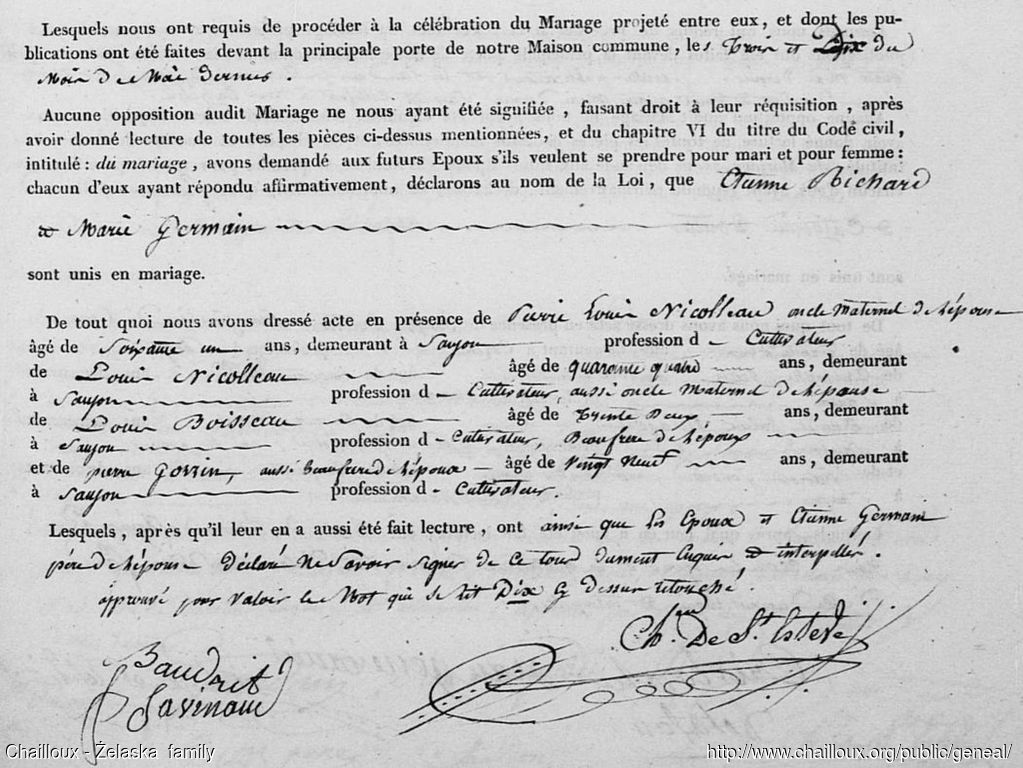 Lesquels nous ont requis de procéder à la célébration du Mariage projeté entre eux, et dont les pu-
blications ont été faites devant la principale porte de notre Maison commune, les Trois et Dix du
Mois de Mai dernier.
Aucune opposition audit Mariage ne nous ayant été signifiée, faisant droit à leur réquisition, après
avoir donné lecture de toutes les pièces ci-dessus mentionnées, et du chapitre VI du titre du Code civil,
intitulé : du mariage, avons demandé aux futurs Epoux s'ils veulent se prendre pour mari et pour femme :
chacun d'eux ayant répondu affirmativement, déclarons au nom de la Loi, que Etienne Richard
et Marie Germain
sont unis en mariage.
De tout quoi nous avons dressé acte en présence de Pierre Louis Nicolleau oncle Maternel de l'épouse
âgé de Soixante un ans, demeurant à Saujon profession d Cultivateur
de Louis Nicolleau âgé de quarante quatre ans, demeurant
à Saujon profession d Cultivateur, aussi oncle Maternel de l'épouse
de Louis Boisseau âgé de Trente Deux ans, demeurant
à Saujon profession d Cultivateur, Beaufrere de l'époux
et de pierre Gorrin, aussi Beaufrere de l'époux âgé de Vingt Neuf ans, demeurant
à Saujon profession d Cultivateur.
Lesquels, après qu'il leur en a aussi été fait lecture, ont ainsi que les Epoux et Etienne Germain
père de l'épouse Déclaré Ne Savoir Signer de ce tous dument Enquis et interpellés.
approuvé pour valoir le Mot qui se lit Dix cy dessus retouché
Ch. De St. Esteve
Baudrit
Savineau
Chailloux - Żelaska family
http://www.chailloux.org/public/geneal/